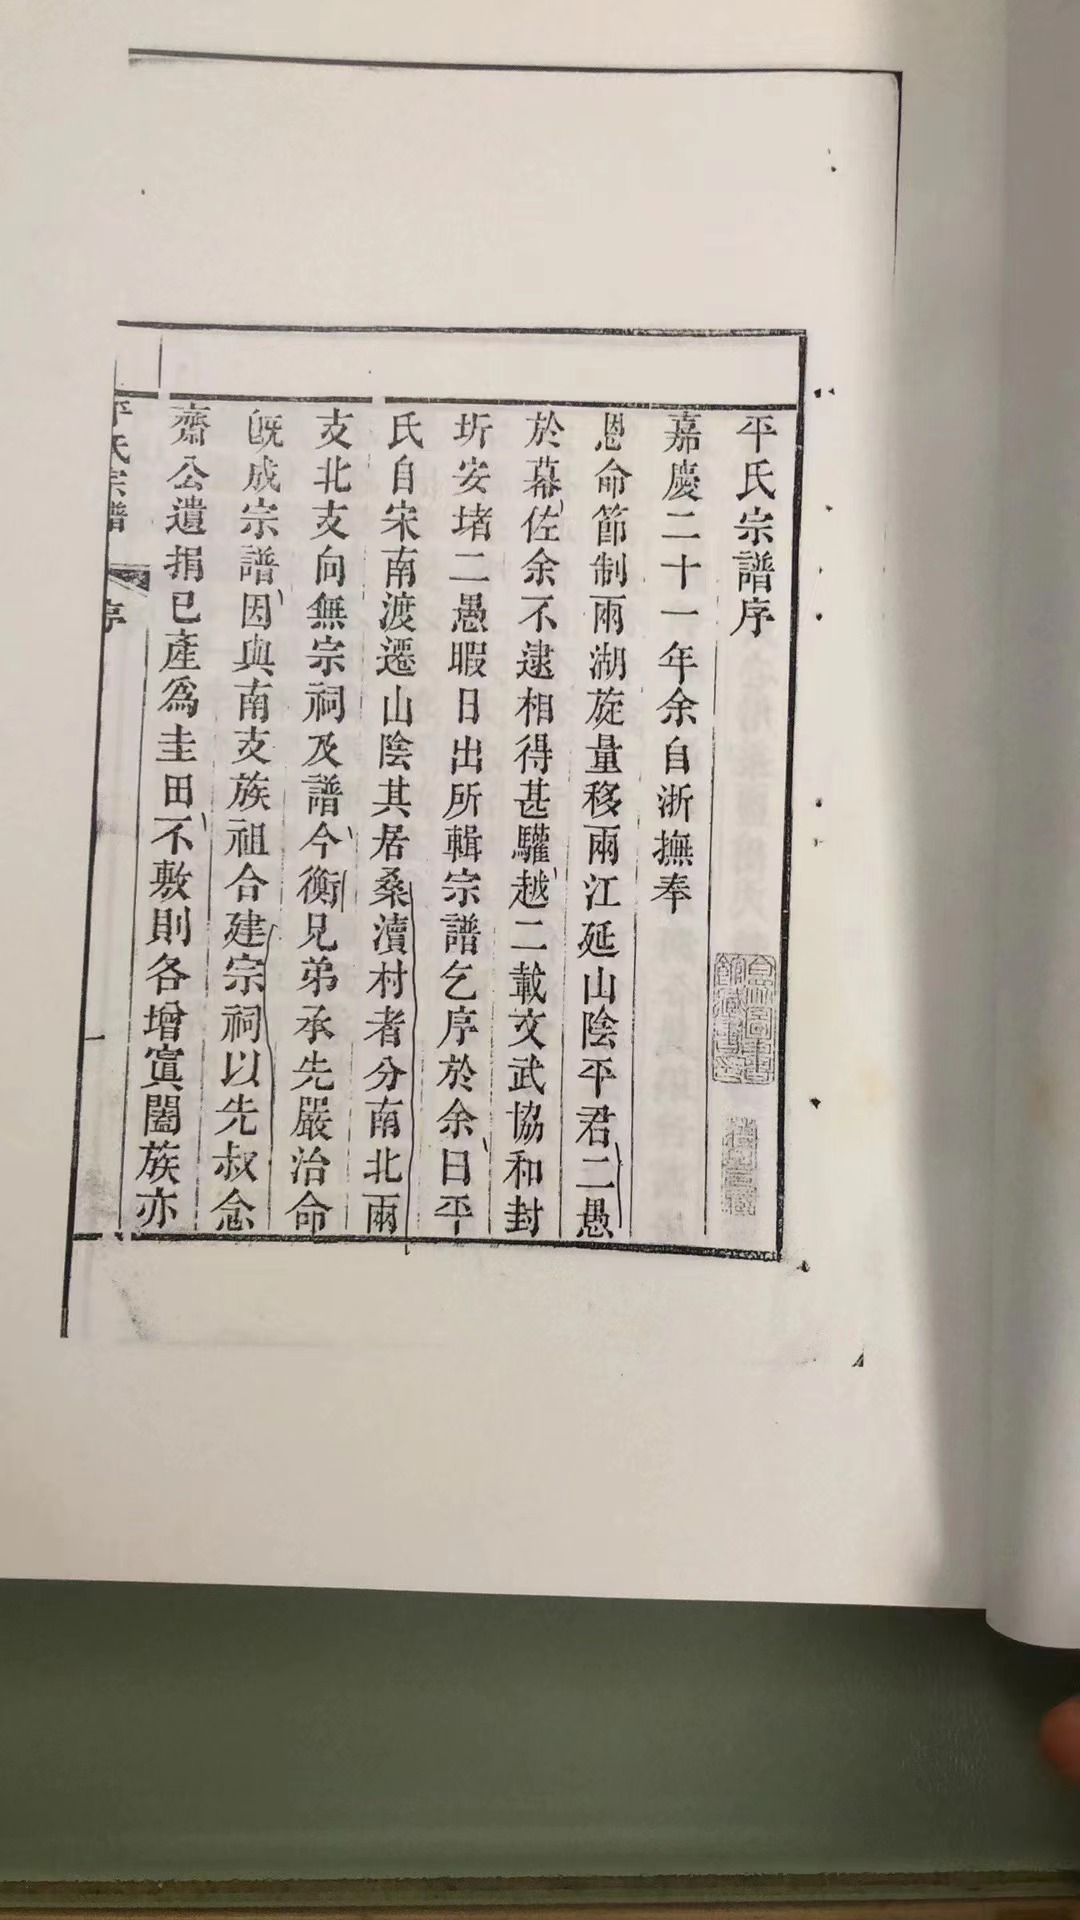 平氏宗譜序
嘉慶二十一年余自浙撫奉
恩命節制兩湖旋量移兩江延山陰平君二愚
於幕佐余不逮相得甚驩越二載文武協和封
圻安堵二愚暇日出所輯宗譜乞序於余曰平
氏自宋南渡遷山陰其居桑瀆村者分南北兩
支北支向無宗祠及譜今衡兄弟承先嚴治命
既成宗譜因與南支族祖合建宗祠以先叔念
齋公遺捐已產為圭田不敷則各增寘闔族亦
平氏宗譜
序